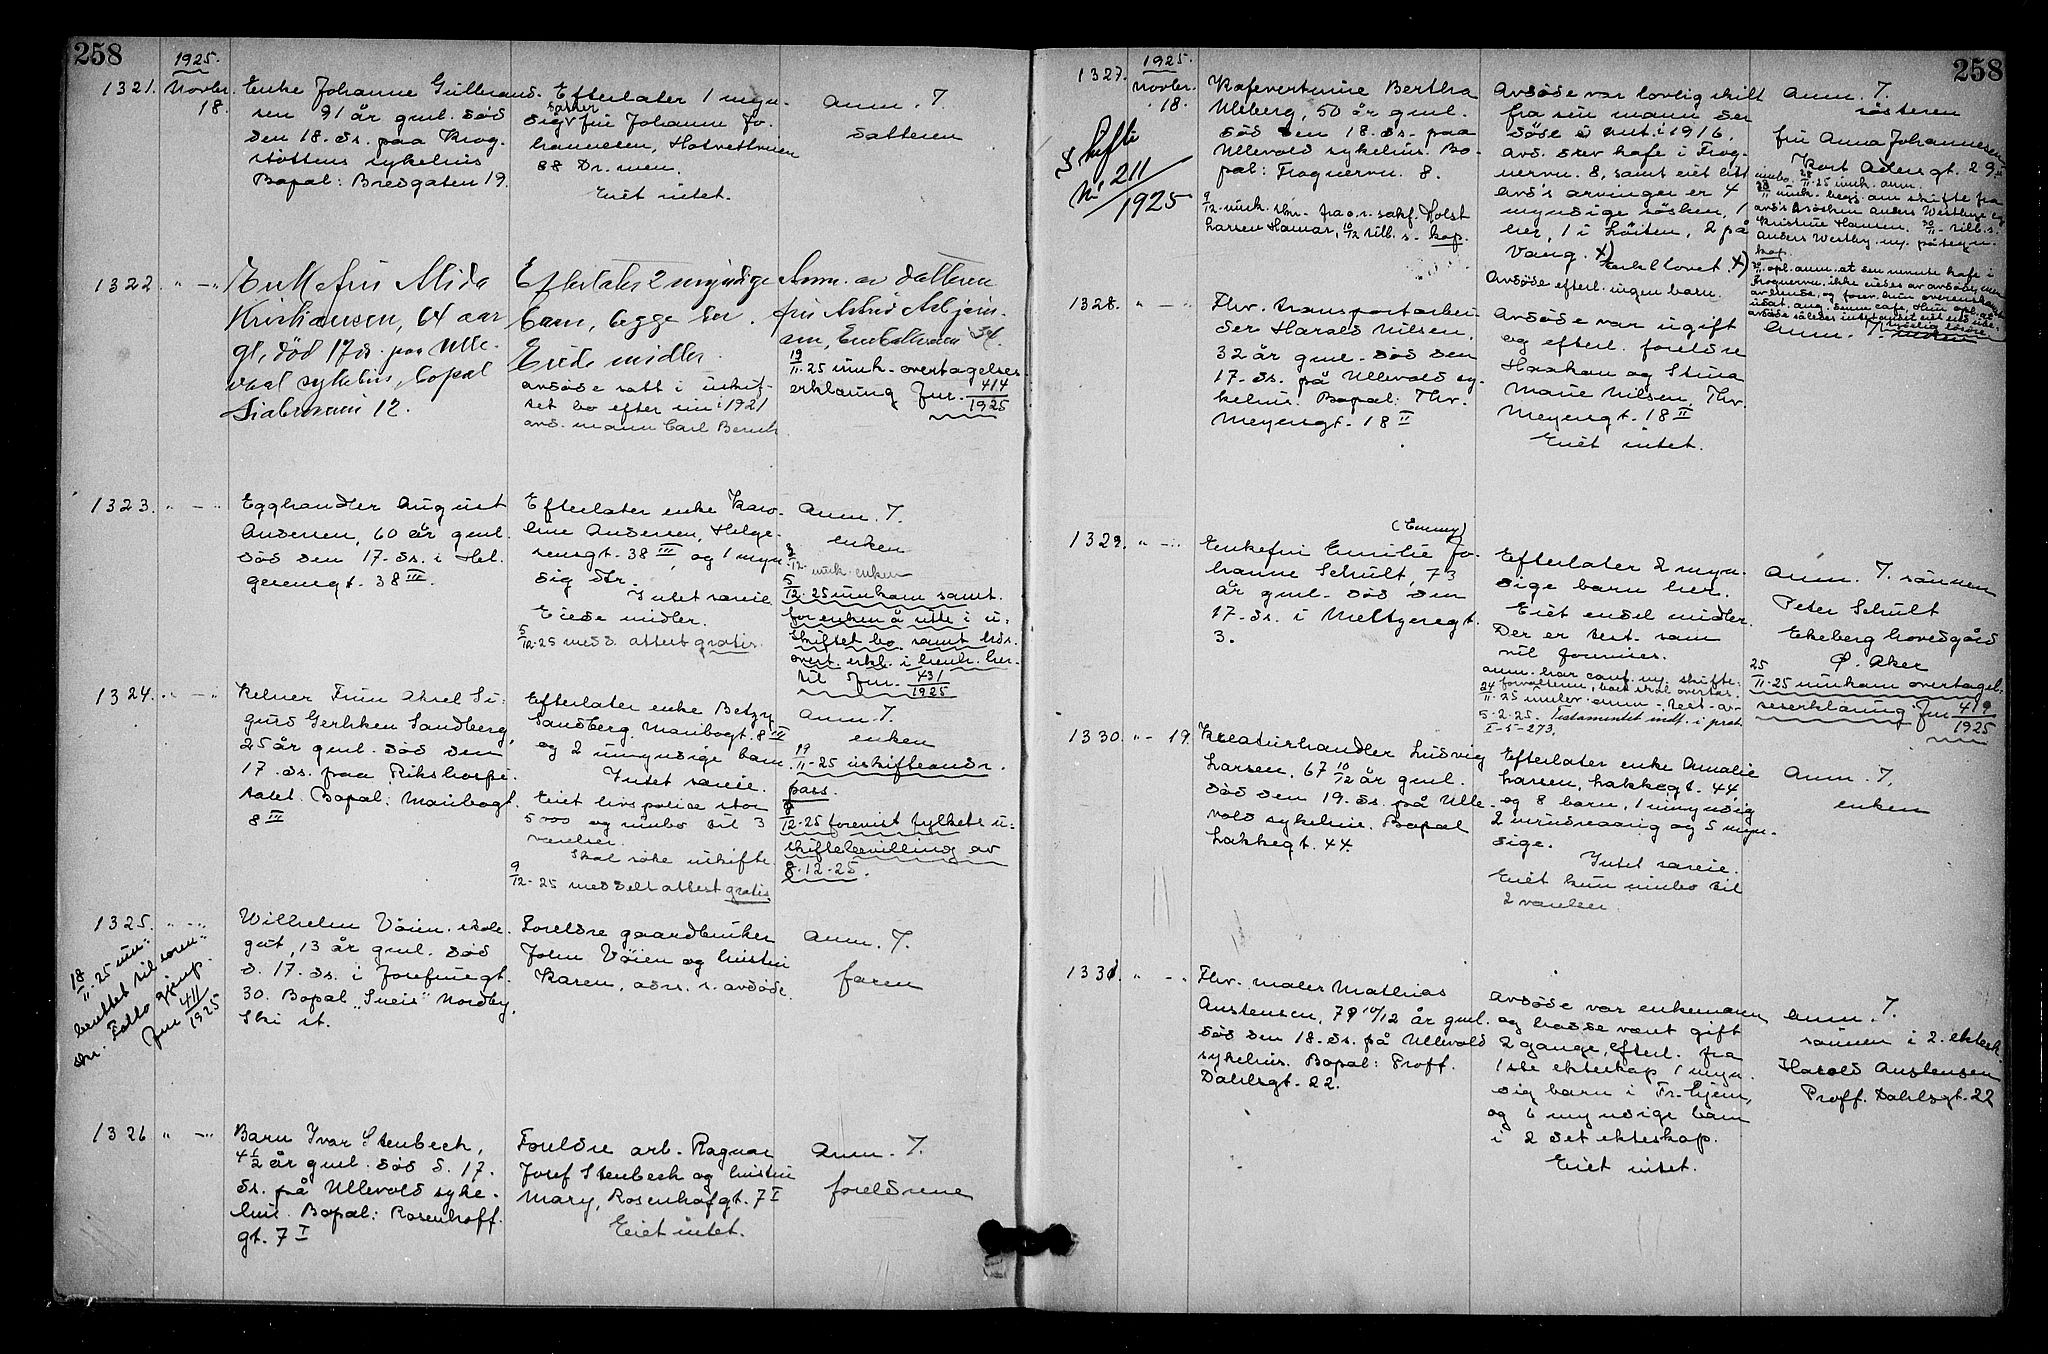 258
1925.
1321. Novbr. 18.
Enke Johanne Gulbrand-
sen 91 år gml. død
den 18. ds. paa Krog-
støttens sykehus
Bopæl: Bredgaten 19.
Efterlater 1 myn-
dig datter fru Johanne Jo-
hannesen,
88 Drmen.
Eiet intet.
Anm. T.
datteren
1322 " — "
Enkefru Alida
Kristiansen, 64 aar
gl, død 17 ds. paa Ulle-
vaal sykehus, bopæl
12.
Efterlater 2 myndige
barn, begge her.
Eiede midler.
avdøde satt i uskif-
tet bo efter sin i 1921
avd. mann Carl Bernh.
Anm. av datteren
fru Astrid Asbjørn-
sen,
19/11-25 innk. overtagelses
erklæring Jnr. 414/1925
1323. " — "
Egghandler August
Andersen, 60 år gml.
død den 17. ds. i Hel-
gesensgt. 38 III.
Efterlater enke Karo-
line Andersen, Helge-
sensgt. 38 III, og 1 myn-
dig dtr.
Intet særeie.
Eiede midler.
5/12-25 medd. attest gratis.
Anm. T.
enken
3/12. innk. enken
5/12-25 innkom samt.
for enken å sitte i u-
skiftet bo samt
overt. erkl. i henh. her-
til Jnr. 431/1925
1324. " — "
Kelner Finn Aksel Si-
gurd Gerhken Sandberg,
25 år gml. død den
17. ds. paa Rikshospi-
talet. Bopæl: Maribogt.
8 III
Efterlater enke Betzy
Sandberg, Maribogt. 8 III
og 2 umyndige barn.
Intet særeie.
Eiet livspolice stor
500 og innbo til 3
værelser.
Skal søke uskifte.
9/12-25 meddelt attest gratis
Anm. T.
enken
19/11-25 uskifteandr.
pass.
9/12-25 forevist fylkets u-
skiftebevilling av
8-12-25.
1325. " — "
18/11-25 inn-
berettet til soren-
skr. Follo gjenp.
Jnr 411/1925
Wilhelm Vøien, skole-
gut, 13 år gml. død
d. 17. ds. i Josefinegt.
30. Bopæl "Sneis" Nordby,
Ski st.
Foreldre gaardbruker
John Vøien og hustru
Karen, adr. s. avdøde.
Anm. T.
faren
1326 " — "
Barn Ivar Stenbeck,
4 1/2 år gml. død d. 17.
ds. på Ullevold syke-
hus. Bopæl: Rosenhoff-
gt. 7 I
Foreldre arb. Ragnar
Josef Stenbeck og hustru
Mary, Rosenhofgt. 7 I
Eiet intet.
Anm. T.
foreldrene
258
1925.
1327. Novbr. 18.
Skifte
Nr 211/1925
Kafevertinne Bertha
Uleberg, 50 år gml.
død den 18. ds. paa
Ullevold sykehus. Bo-
pæl: Frognervn. 8.
9/12. innk. skr. fra o.r. sakf. Holst
Larsen Hamar, 10/12 tilb. s. kop.
Avdøde var lovlig skilt
fra sin mann der
døde i aut. i 1916.
Avd. drev kafe i Frog-
nervn. 8, samt eiet litt
avd's arvinger er 4
myndige søsken, 1
her, 1 i Løiten, 2 på
Vang. x)
Avdøde efterl. ingen barn.
Anm. T.
søsteren
fru Anna Johannesen
Kort Adelersgt. 29
innbo. 28/11-25 innk. anm.
28/11 innk. begj. om skifte fra
avd's søsken Anders Westbye og
Kristine Hansen. 30/11 - tilb. s.
Anders Westby m. påtegn.
kop.
1328. " — "
Fhv. transportarbei-
der Harald Nilsen,
32 år gml. død den
17. ds. på Ullevold sy-
kehus. Bopæl: Thv.
Meyersgt. 18 II
Avdøde var ugift
og efterl. foreldre
Haakon og Stina
Marie Nilsen, Thv.
Meyersgt. 18 II
Eiet intet.
Anm. T.
1329. " — "
(Emmy)
Enkefru Emilie Jo-
hanne Schult, 73
år gml. død den
17. ds. i Meltzersgt.
3.
Efterlater 2 myn-
dige barn her.
Eiet endel midler.
Der er test. som
vil forevises.
anm. har conf. m. skifte-
forvalteren, boet skal overtas.
24/11-25 innlev. anm. test. av
5-2-25. Testamentet indt. i prot.
I-5-273.
Anm. T. sønnen
Peter Schult
Ekeberg hovedgård
Ø. Aker
25/11-25 innkom overtagel-
seserklæring Jnr 419/1925
1330. " — 19.
Kreaturhandler Ludvig
Larsen, 67 10/12 år gml.
død den 19. ds. på Ulle-
vold sykehus. Bopæl
Lakkegt. 44.
Efterlater enke Amalie
Larsen, Lakkegt. 44
og 8 barn, 1 umyndig
2 mindreaarig og 5 myn-
dige.
Intet særeie.
Eiet kun innbo til
2 værelser.
Anm. T.
enken
1331. " — "
Fhv. maler Mathias
Austensen, 79 10/12 år gml.
død den 18. ds. på Ullevold
sykehus. Bopæl: Proff.
Dahlsgt. 22.
Avdøde var enkemann
og hadde vært gift
2 gange, efterl. fra
1ste ekteskap 1 myn-
dig barn i Tr.hjem,
og 6 myndige barn
i 2 det ekteskap.
Eiet intet.
Anm. T.
sønnen i 2. ektesk.
Harald Austensen
Proff. Dahlsgt. 22